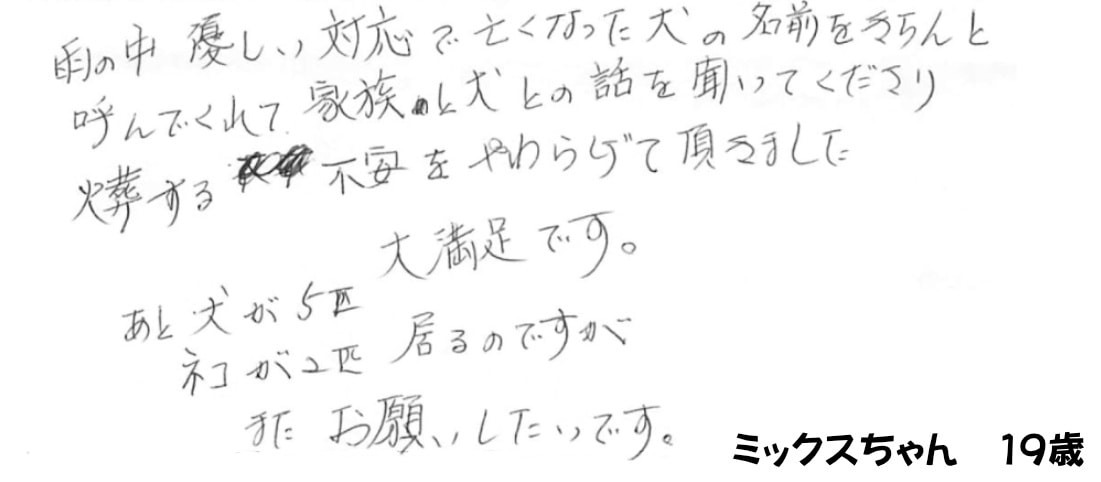 雨の中 優しい 対応で 亡くなった 犬の 名前をきちんと
呼んでくれて 家族と犬との話を聞いてくださり
火葬する 不安をやわらげて頂きました
大満足です。
あと犬が5匹
ネコが2匹 居るのですが
また お願いしたいです。
ミックスちゃん 19歳